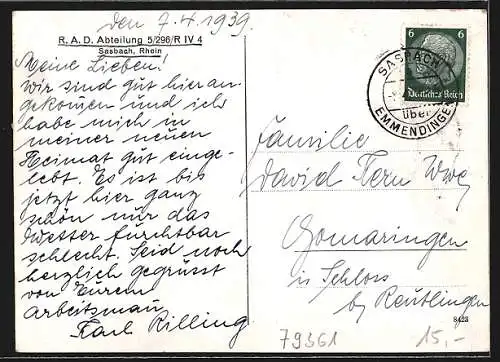 den 7.4.1939.
R. A. D. Abteilung 5/296/R IV 4
Sasbach, Rhein
Meine Lieben!
Wir sind gut hieran-
gekommen und ich
habe mich in
meiner neuen
Heimat gut einge-
lebt. Es ist bis
jetzt hier ganz
schön nur das
Wetter furchtbar
schlecht. Seid noch
herzlich gegrüsst
von Eurem
Arbeitsmann
Karl Rilling
6 6
Deutsches Reich
SASBACH
über
EMMENDINGEN
Familie
David Kern Wwe
Gomaringen
in Schloss
by Reutlingen
8423
79361
15,-